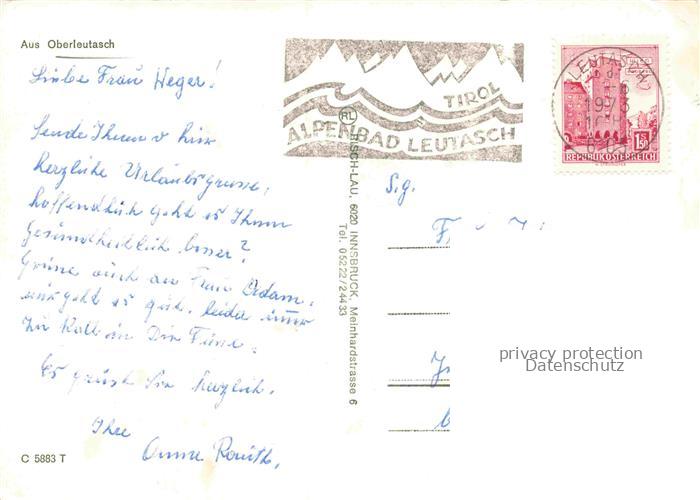 Aus Oberleutasch
Liebe Frau Weger!
Sende Ihnen v hier
herzliche Urlaubsgrüsse,
hoffendlich geht es Ihnen
Gesundheidlich besser?
Grüsse auch an Frau Adam.
mir geht es gut, leider
zu Kalt in
Es grüsst Sie herzlich.
Ihre
Anne
C 5883 T
TIROL
ALPENBAD LEUTASCH
RL
RISCH-LAU, 6020 INNSBRUCK, Meinhardstrasse 6
Tel. 05222/24433
LEUTASCH
1973
150
REPUBLIK ÖSTERREICH
S.g.
privacy protection
Datenschutz